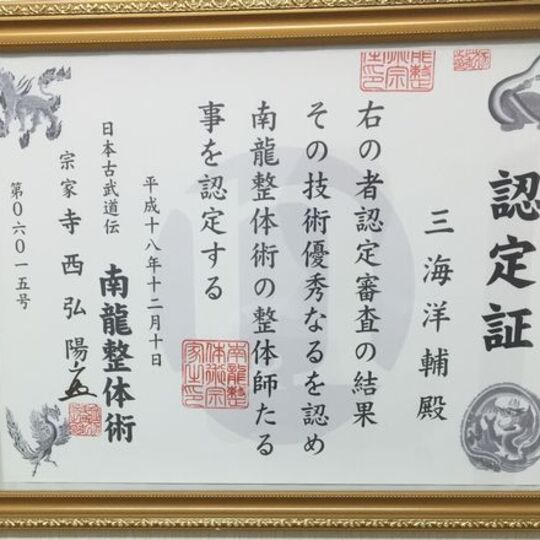 認定証
三海洋輔殿
右の者認定審査の結果
その技術優秀なるを認め
南龍整体術の整体師たる
事を認定する
平成十八年十二月十日
日本古武道伝
南龍整体術
宗家寺西弘陽
第〇六〇一五号